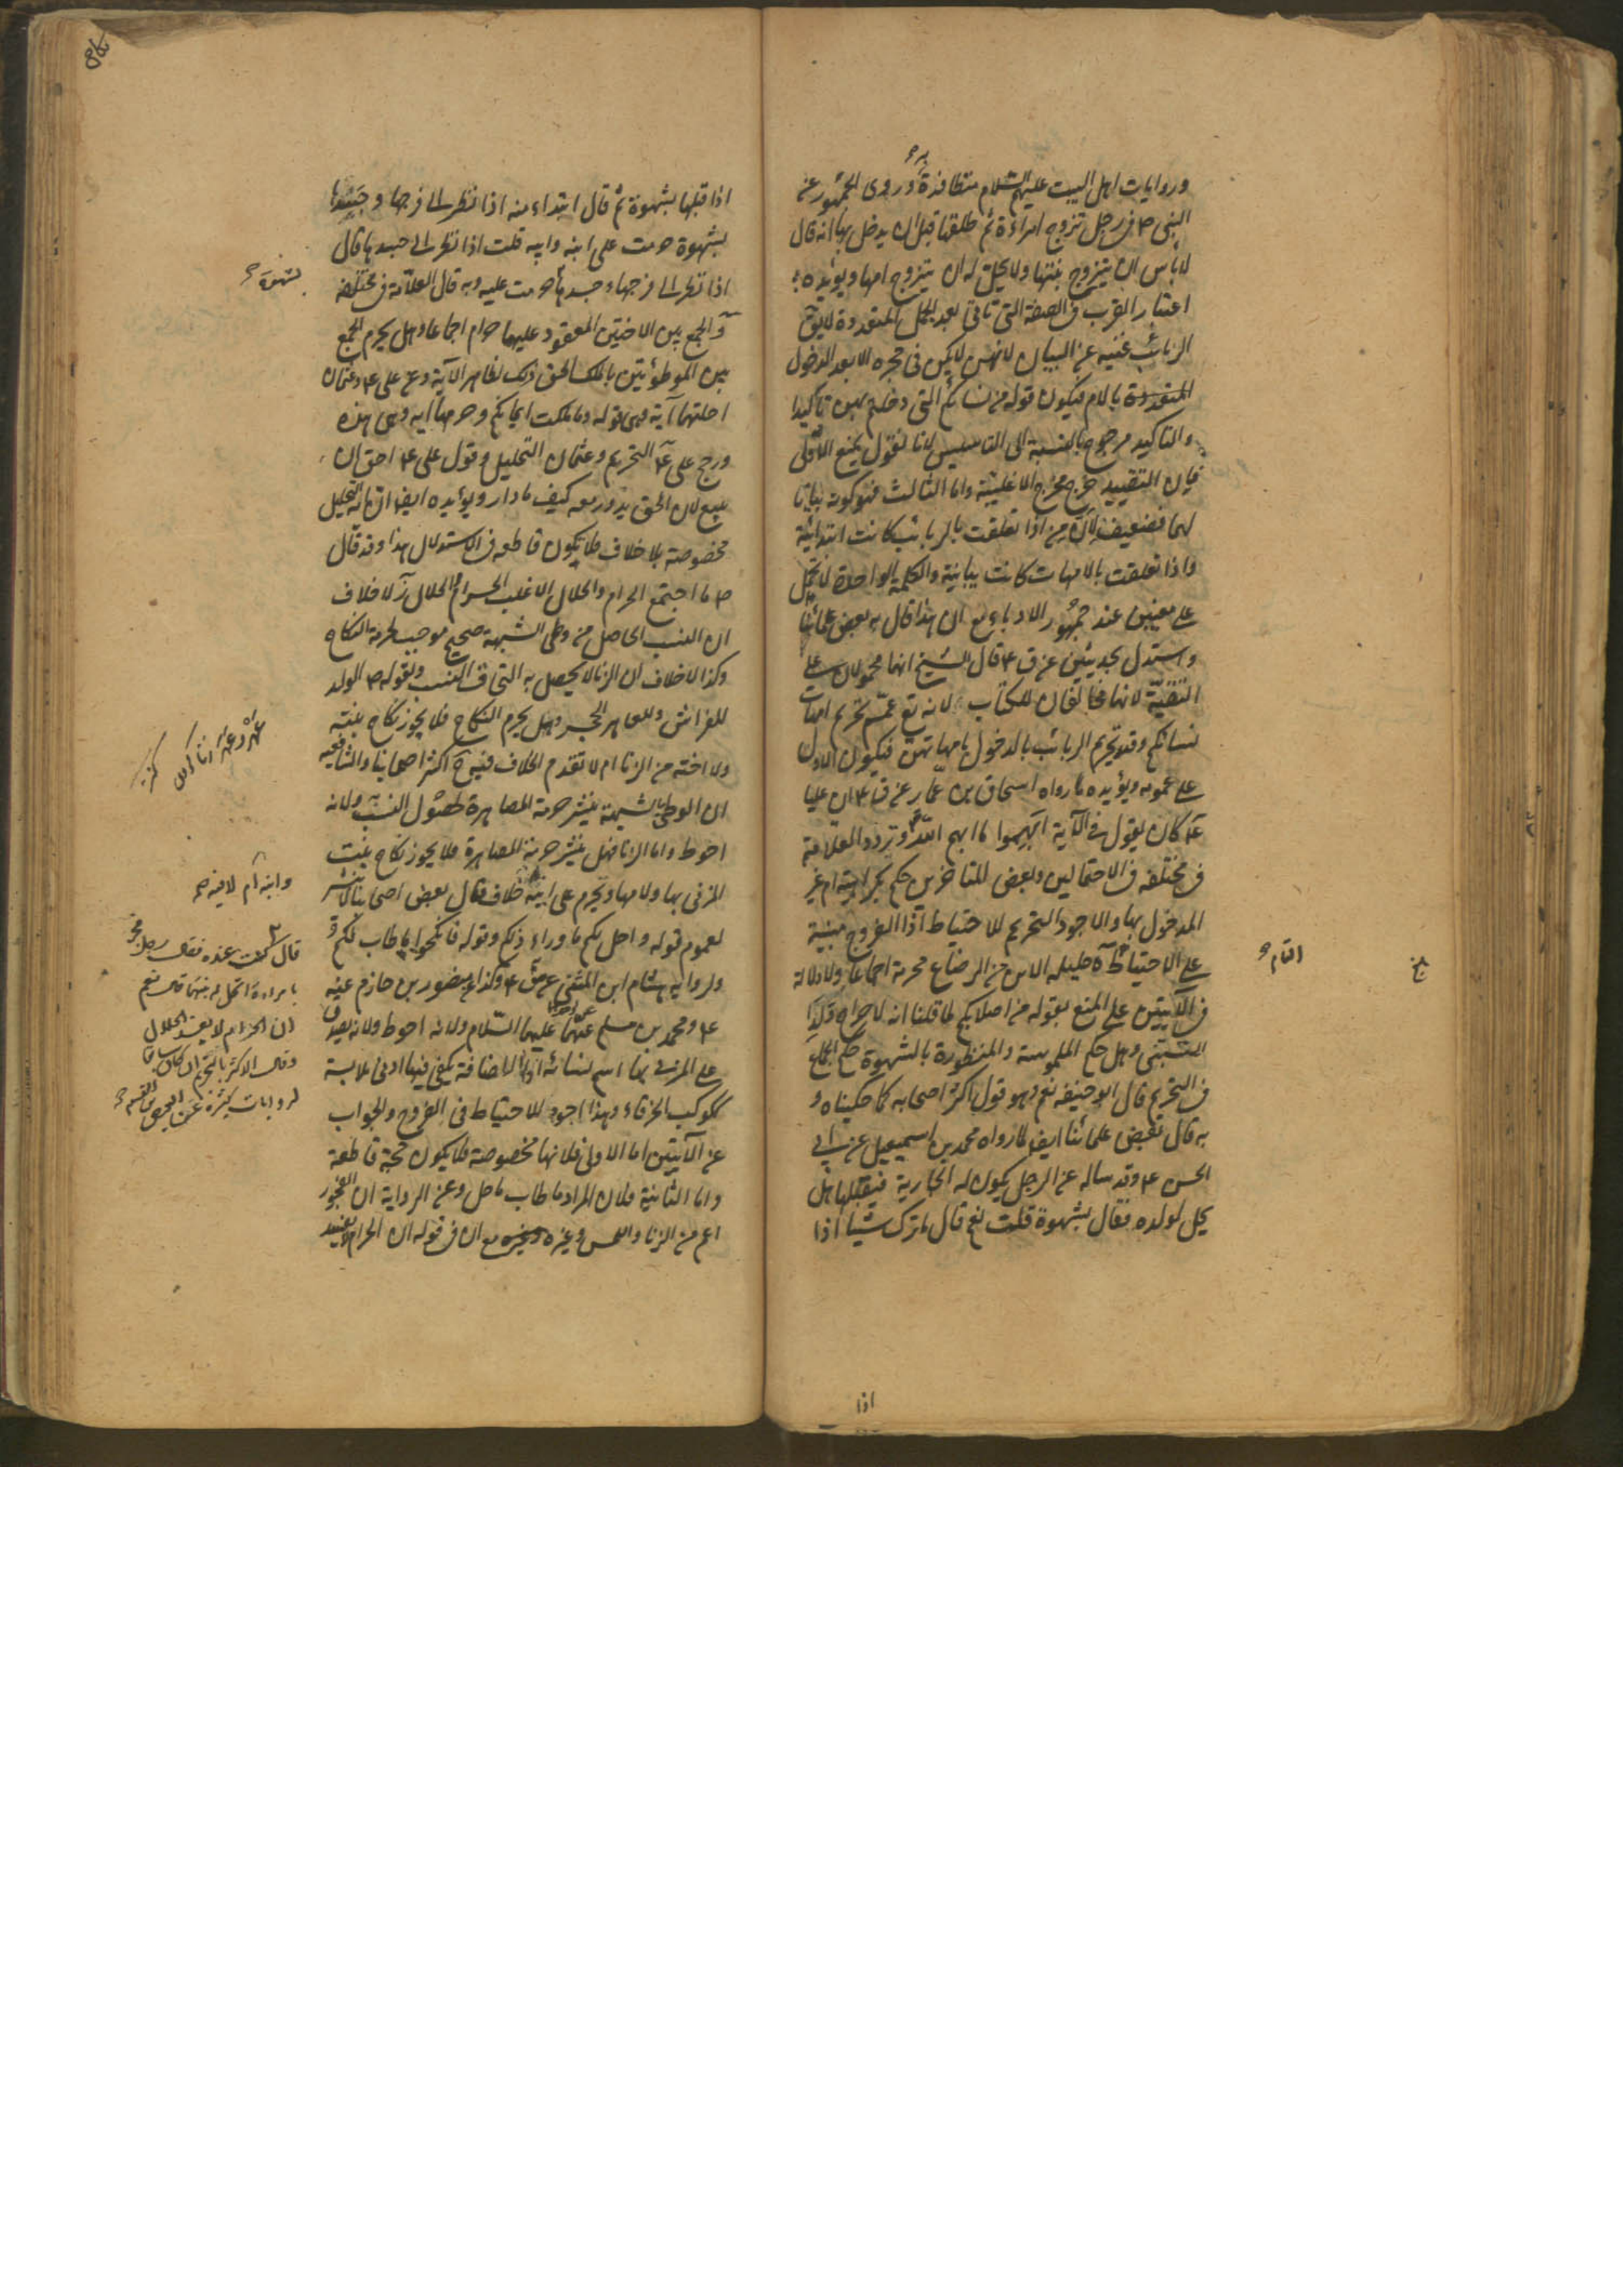 وروايات اهل البيت عليهم السلام متظافرة به وروى الجمهور عن
النبى ص فى رجل تزوج امراءة ثم طلقها قبل ان يدخل بها انه قال
لا باس ان يتزوج بنتها ولا يحل له ان يتزوج امها ويؤيده
اعتبار القرب فى الصفة التى تاتى بعد الجمل المتعددة لا يق
الربائب غنيه عن البيان لانهن لا يكن فى حجره الا بعد الدخول
بالام فيكون قوله من نسائكم التى دخلتم بهن تاكيدا
والتاكيد مرجوح بالنسبة الى التاسيس لانا نقول بمنع الاولى
فان التقييد خرج مخرج الاغلبية واما الثالث فهو كونه بيانا
لهما فضعيف لان من اذا تعلقت بالربائب كانت ابتدائية
واذا تعلقت بالامهات كانت بيانية والكلمة الواحدة لا تحمل
على معنيين عند جمهور الادباء مع ان هذا قال به بعض علمائنا
واستدل بحديثين عن ق ع قال الشيخ انهما محمولان على
التقيّة لانهما مخالفان للكتاب لانه تع عمّم تحريم امهات
نسائكم وقيد تحريم الربائب بالدخول بامهاتهن فيكون الاول
على عمومه ويؤيده ما رواه اسحاق بن عمّار عن ق ع ان عليا
ع كان يقول فى الآية ابهموا ما ابهم اللّه وتردد العلامة
فى مختلفه فى الاحتمالين وبعض المتاخرين حكم بكراهية ام غير
المدخول بها والاجود التحريم للاحتياط اذا الفروج مبنية
على الاحتياط آ حليله الابن من الرضاع محرمة اجماعا ولا دلالة
فى الآيتين على المنع بقوله من اصلابكم لما قلنا انه لاخراج ولد
التبنّى وهل حكم الملموسة والمنظورة بالشهوة حكم الجماع
فى التحريم قال ابو حنيفة نعم وهو قول اكثر اصحابه كما حكيناه و
به قال بعض علمائنا ايض لما رواه محمد بن اسمعيل عن ابى
الحسن ع وقد ساله عن الرجل يكون له الجارية فيقبلها هل
يحل لولده فقال بشهوة قلت نعم قال ما ترك شيئا اذا
اذا
اذا قبلها بشهوة ثم قال ابتداء منه اذا نظر الى فرجها وجسدها
بشهوة حرمت على ابنه وابيه قلت اذا نظر الى جسدها قال
اذا نظر الى فرجها وجسدها حرمت عليه وبه قال العلامة فى مختلفه
بشهوة
والجمع بين الاختين المعقود عليهما حرام اجماعا وهل يحرم الجمع
بين الموطوئتين بالملك الحق ذلك لظاهر الآية وعن على ع وعثمان
احلتهما آية وهى قوله وما ملكت ايمانكم وحرمها آية وهى هذه
ورجح على ع التحريم وعثمان التحليل وقول على ع احق ان
يتبع لان الحق يدور معه كيف ما دار ويؤيده ايض ان آية التحليل
مخصوصة بلا خلاف فلا يكون قاطعه فى الاستدلال هذا وقد قال
ص ما اجتمع الحرام والحلال الا غلب الحرام الحلال ز لا خلاف
ان النسب الحاصل من وطى الشبهة صحيح موجب لحرمة النكاح
وكذا لا خلاف ان الزنا لا يحصل به التحاق النسب ولقوله ص الولد
للفراش وللعاهر الحجر وهل يحرم النكاح فلا يجوز نكاح بنته
ولا اخته من الزنا ام لا تقدم الخلاف فيه ح اكثر اصحابنا والشافعيه
ان الوطى بالشبهة ينشر حرمة المصاهرة لحصول النسب ولانه
احوط واما الزنا فهل ينشر حرمة المصاهرة فلا يجوز نكاح بنت
المزنى بها ولا امها ويحرم على ابنه خلاف فقال بعض اصحابنا لا ينشر
وابنه ام لا فيه
لعموم قوله واحل لكم ما وراء ذلكم وقوله فانكحوا ما طاب لكم
ولرواية هشام ابن المثنى عن ق ع وكذا عن منصور بن حازم عنه
ع ومحمد بن مسلم عن احدهما عليهما السّلام ولانه احوط ولانه يصدق
على المزنى بها اسم نسائه اذا الاضافة يكفى فيها ادنى ملابسة
ككوكب الخرقاء وهذا اجود للاحتياط فى الفروج والجواب
عن الآيتين اما الاولى فلانها مخصوصة فلا يكون حجة قاطعة
واما الثانية فلان المراد ما طاب ما حل وعن الرواية ان الفجور
اعم من الزنا واللمس وغيره مع ان فى قوله ان الحرام لا يفسد
قال كنت عنده فقال رجل فجر
بامراءة اتحل له بنتها قال نعم
ان الحرام لا يفسد الحلال
وقال الاكثر بالتحريم ان كان سابقا
لروايات كثيرة عن العيص بن القسم